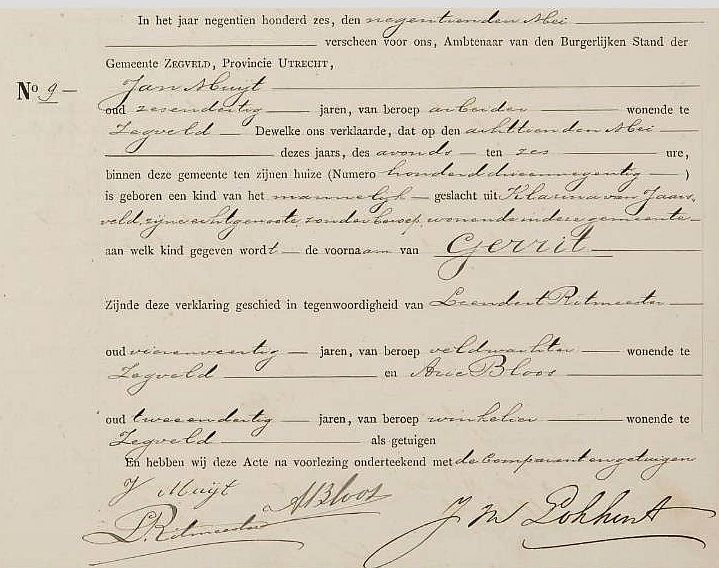 In het jaar negentien honderd zes, den negentienden Mei
verscheen voor ons, Ambtenaar van den Burgerlijken Stand der
Gemeente ZEGVELD, Provincie UTRECHT,
No 9
Jan Muijt
oud zesendertig jaren, van beroep arbeider wonende te
Zegveld Dewelke ons verklaarde, dat op den achttienden Mei
dezes jaars, des avonds ten zes ure,
binnen deze gemeente ten zijnen huize (Numero honderd drieennegentig )
is geboren een kind van het mannelijk geslacht uit Klasina van Jaars
veld, zijne echtgenoote, zonder beroep, wonende in deze gemeente
aan welk kind gegeven wordt de voornaam van Gerrit
Zijnde deze verklaring geschied in tegenwoordigheid van Leendert Ritmeester
oud vierenveertig jaren, van beroep veldwachter wonende te
Zegveld en Arie Bloos
oud tweeendertig jaren, van beroep winkelier wonende te
Zegveld als getuigen
En hebben wij deze Acte na voorlezing onderteekend met de Comparant en getuigen
J Muijt
A Bloos
L. Ritmeester
J M